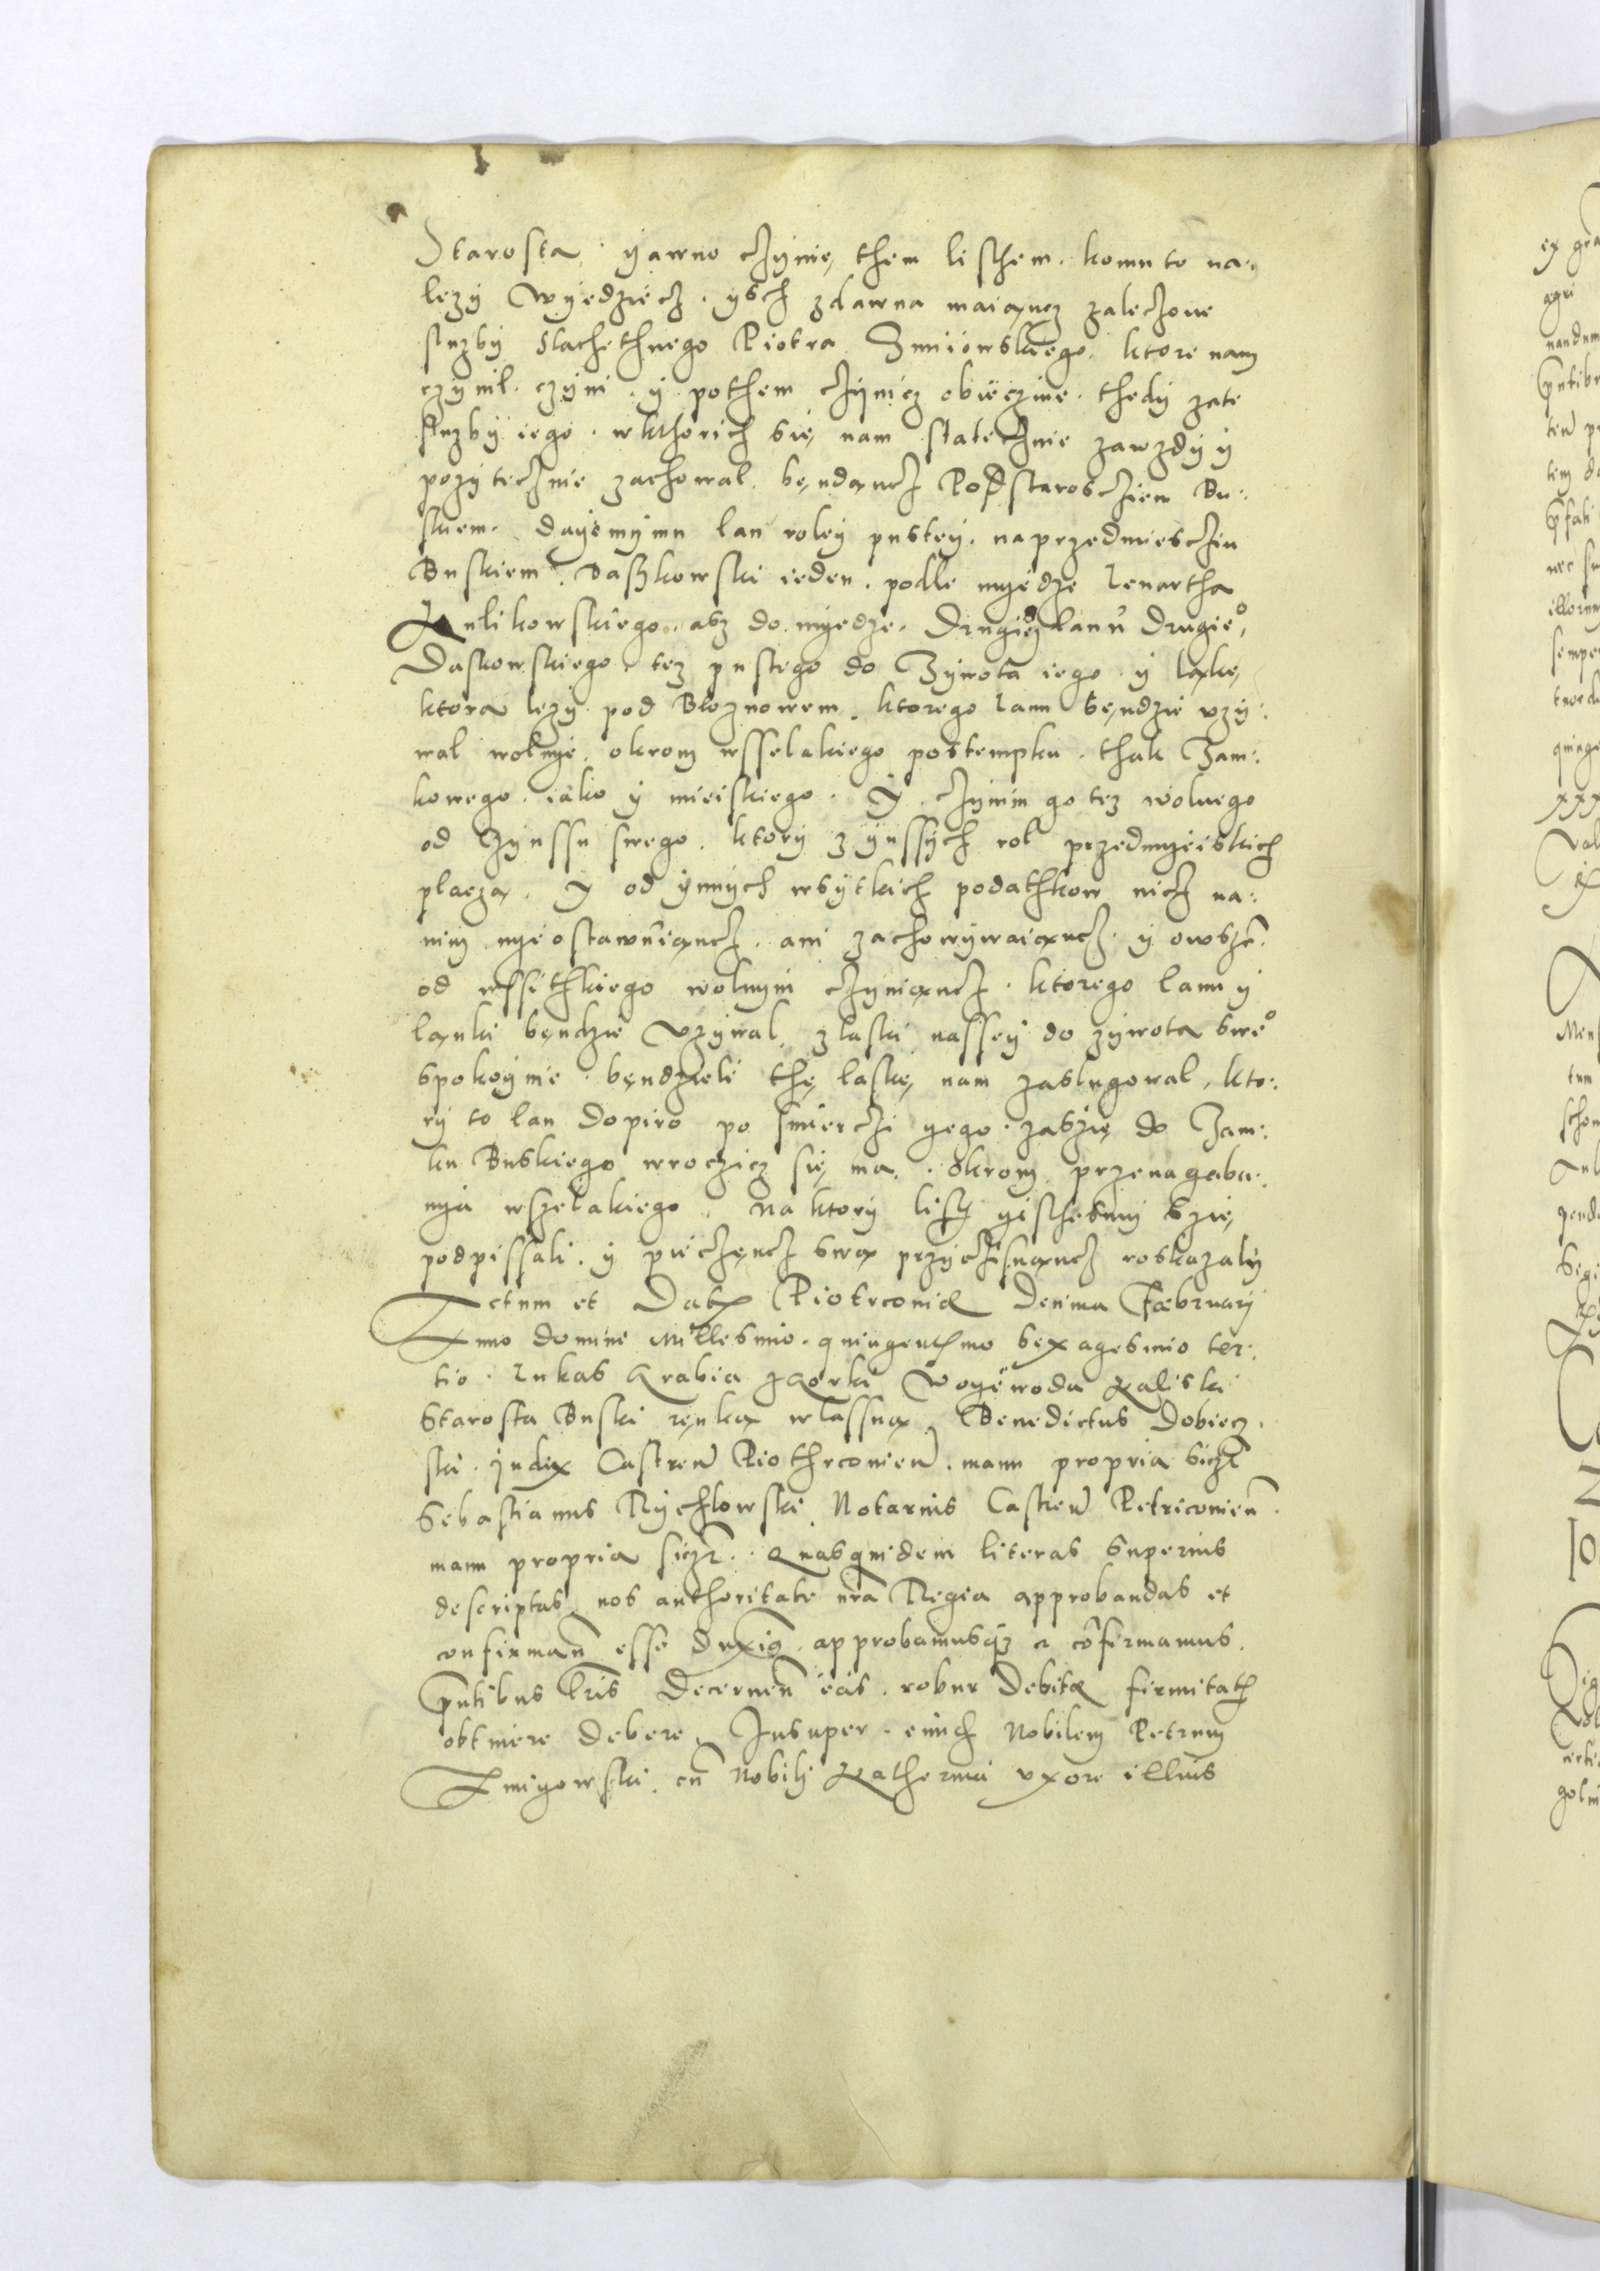 Starosta. yawno czynie, them listhem. komu to na:
lezy wyedziecz. ysch zdawna maiancz zaleczone
sluzby Slachethnego Piotra Zmiiowskiego. ktore nam
czynil. czyni. y pothem czynicz obieczuie. thedy zate
sluzby iego. wkthorich sie, nam statecznie zawzdy y
pozytecznie zachowal. bendancz Podstarosczïem Bu:
skiem. dayemymu lan roley pustey. naprzedmiesczu
Buskiem. Daszkowski ieden. podle myedze Lenartha
Kulikowskiego. asz do myedze. Drugiey lanu Drugieo
Daskowskiego. tez pustego do Zywota iego. y lake,
ktora lezy pod Bloznowem. ktorego lanu bendzie vzy:
wal wolnye. okrom wsselakiego postempku. thak Zam:
kowego. iako y mieiskiego. Y. czynim go tez wolnego
od Czynssu swego. ktory z ynssych rol przedmyeiskich
placza. Y od ynnych wsytkich podathkow nicz na:
nim nye ostawuiancz. ani zachowywaiancz. y owsze
od wssithkiego wolnym czyniancz. ktorego lanu y
lanki bendzie vzywal. zlaski nassey do zywota sweo
spokoynie. bendzieli the laske, nam zaslugowal, kto:
ry to lan dopiro po smierczi yego. zaszie do Zam:
ku Buskiego wroczicz sie ma. okrom przenagaba:
nya wszelakiego. Na ktory list yisthesmy szie,
podpissali. y pieczencz swa przyczisnancz roskazaly
Actum et Dat Piotrconiæ Denima Fæbruarij
Anno domini Millesimo. quingentmo sexagesimo ter:
tio. Lukas Grabia zGorki Woyewoda Kaliski
Starosta Buski renka wlassna. Benedictus Dobiecz:
ski. Judex Castren Piothrconien. manu propria sszt
Sebastianus Rychlowski. Notarius Castren Petriconien.
manu propria sszt.. Quasquidem literas superius
descriptas, nos authoritate nra Regia approbandas et
confirman esse duxim. approbamusqz et cofirmamus.
pntibus lris Decernen eas. robur debitæ firmitatis
obtinere debere. Insuper. eund Nobilem Petrum
Zmigowski. cu Nobilj Katherina vxore illius